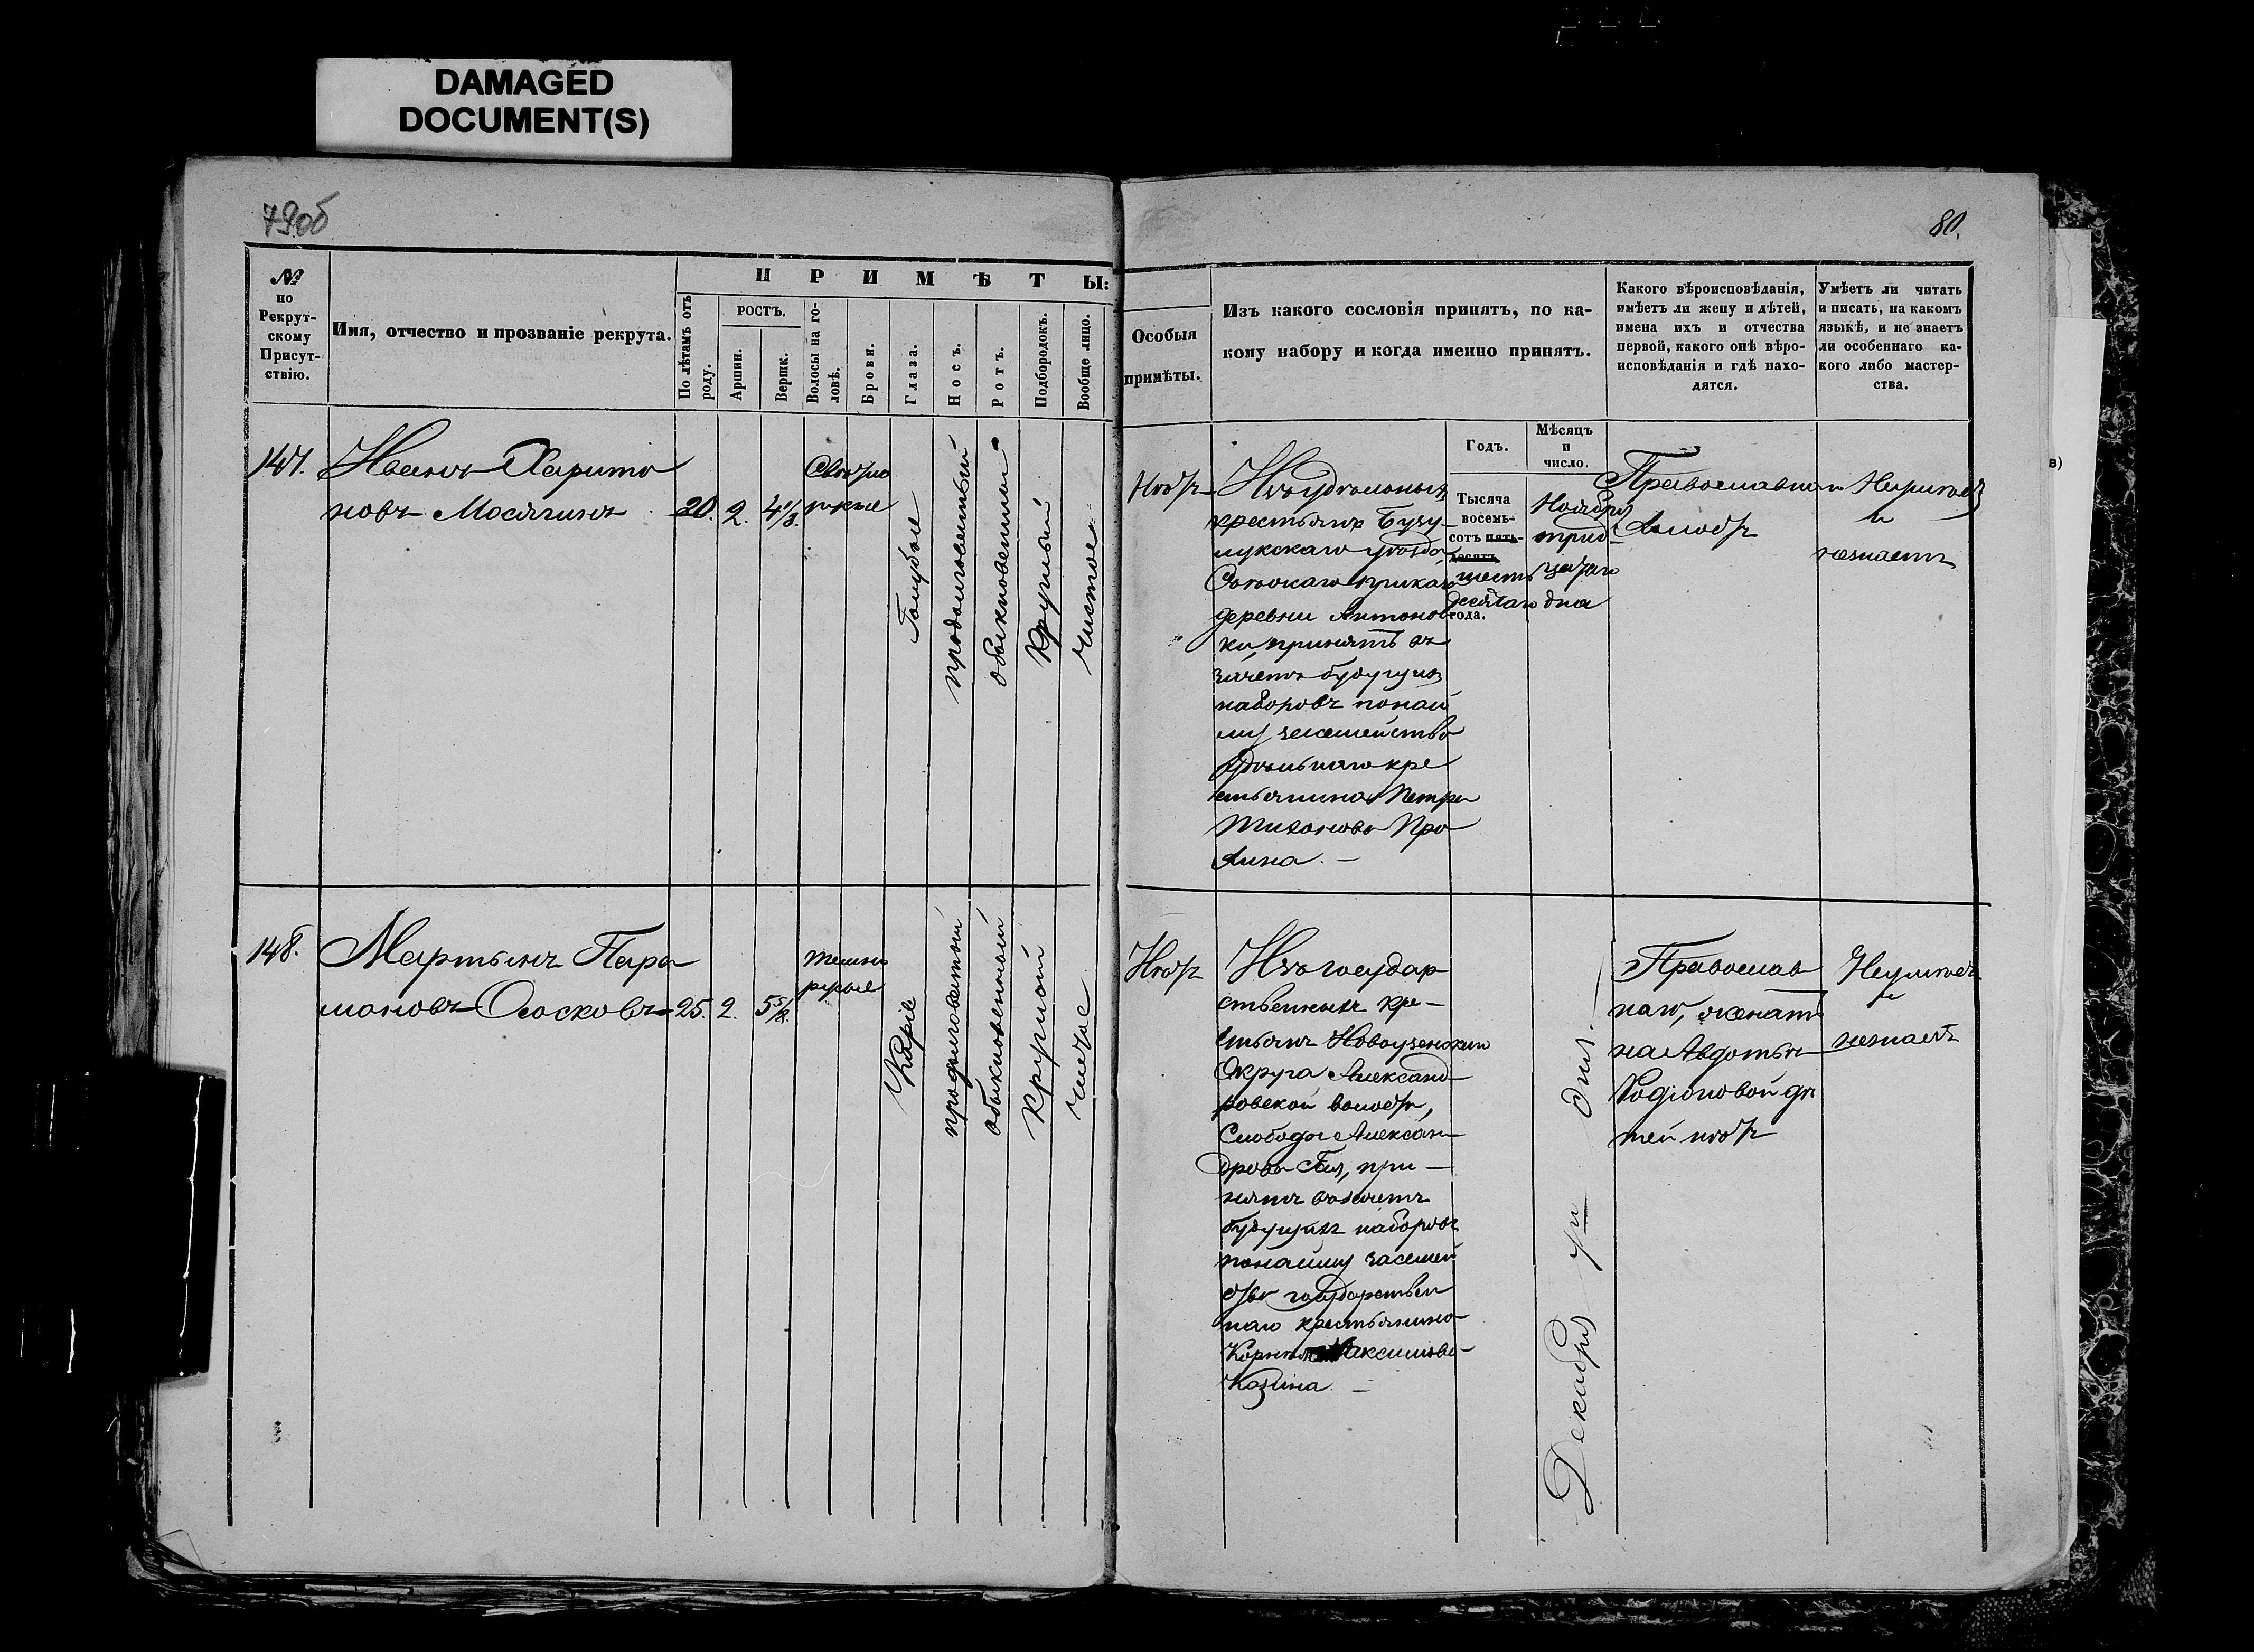 DAMAGED
DOCUMENT(S)
79об
80.
№
по
Рекрут-
скому
Присут-
ствію.
Имя, отчество и прозваніе рекрута.
ПРИМѢТЫ:
По лѣтамъ отъ
роду.
РОСТЪ.
Аршин.
Вершк.
Волосы на го-
ловѣ.
Брови.
Глаза.
Носъ.
Ротъ.
Подбородокъ.
Вообще лицо.
Особыя
примѣты.
Изъ какого сословія принятъ, по ка-
кому набору и когда именно принятъ.
Какого вѣроисповѣданія,
имѣетъ ли жену и дѣтей,
имена ихъ и отчества
первой, какого онѣ вѣро-
исповѣданія и гдѣ нахо-
дятся.
Умѣетъ ли читать
и писать, на какомъ
языкѣ, и не знаетъ
ли особеннаго ка-
кого либо мастер-
ства.
147.
Иванъ Харито
новъ Мосягинъ
20.
2.
4 1/8.
Свѣтло
русые
Голубые
продолговатый
обыкновенный
Круглый
чистое
Нѣтъ
Изъ удѣльныхъ
крестьянъ Бузу-
лукскаго уѣзда
приказа
деревни Антонов
ки, принятъ въ
зачетъ будущихъ
наборовъ по най
му за семейство
удѣльнаго кре
стьянина Петра
Тихонова Про
нина. —
Годъ.
Мѣсяцъ
и
число.
Тысяча
восемь-
сотъ пять-
десятъ
шесть
десятаго
года.
Ноября
трид-
цатаго
дня
Православнаго
холостъ
Неумѣетъ
и
незнаетъ
148.
Мартынъ Пара
моновъ Лосковъ
25.
2.
5 5/8.
темно
русые
Каріе
продолговатый
обыкновенный
круглый
чистое
Нѣтъ
Изъ государ
ственныхъ кре-
стьянъ Новоузенскаго
Округа Александ-
ровской волости,
Слободы Алексан-
дрова Гая, при-
нятъ въ зачетъ
будущихъ наборовъ
по найму за семей
ство государствен
наго крестьянина
Корнея Максимова
Казина. —
Декабря
дня. —
Православ
наго, женатъ
на Авдотьи
Родіоновой дѣ
тей нѣтъ
Неумѣетъ
и
незнаетъ
в)